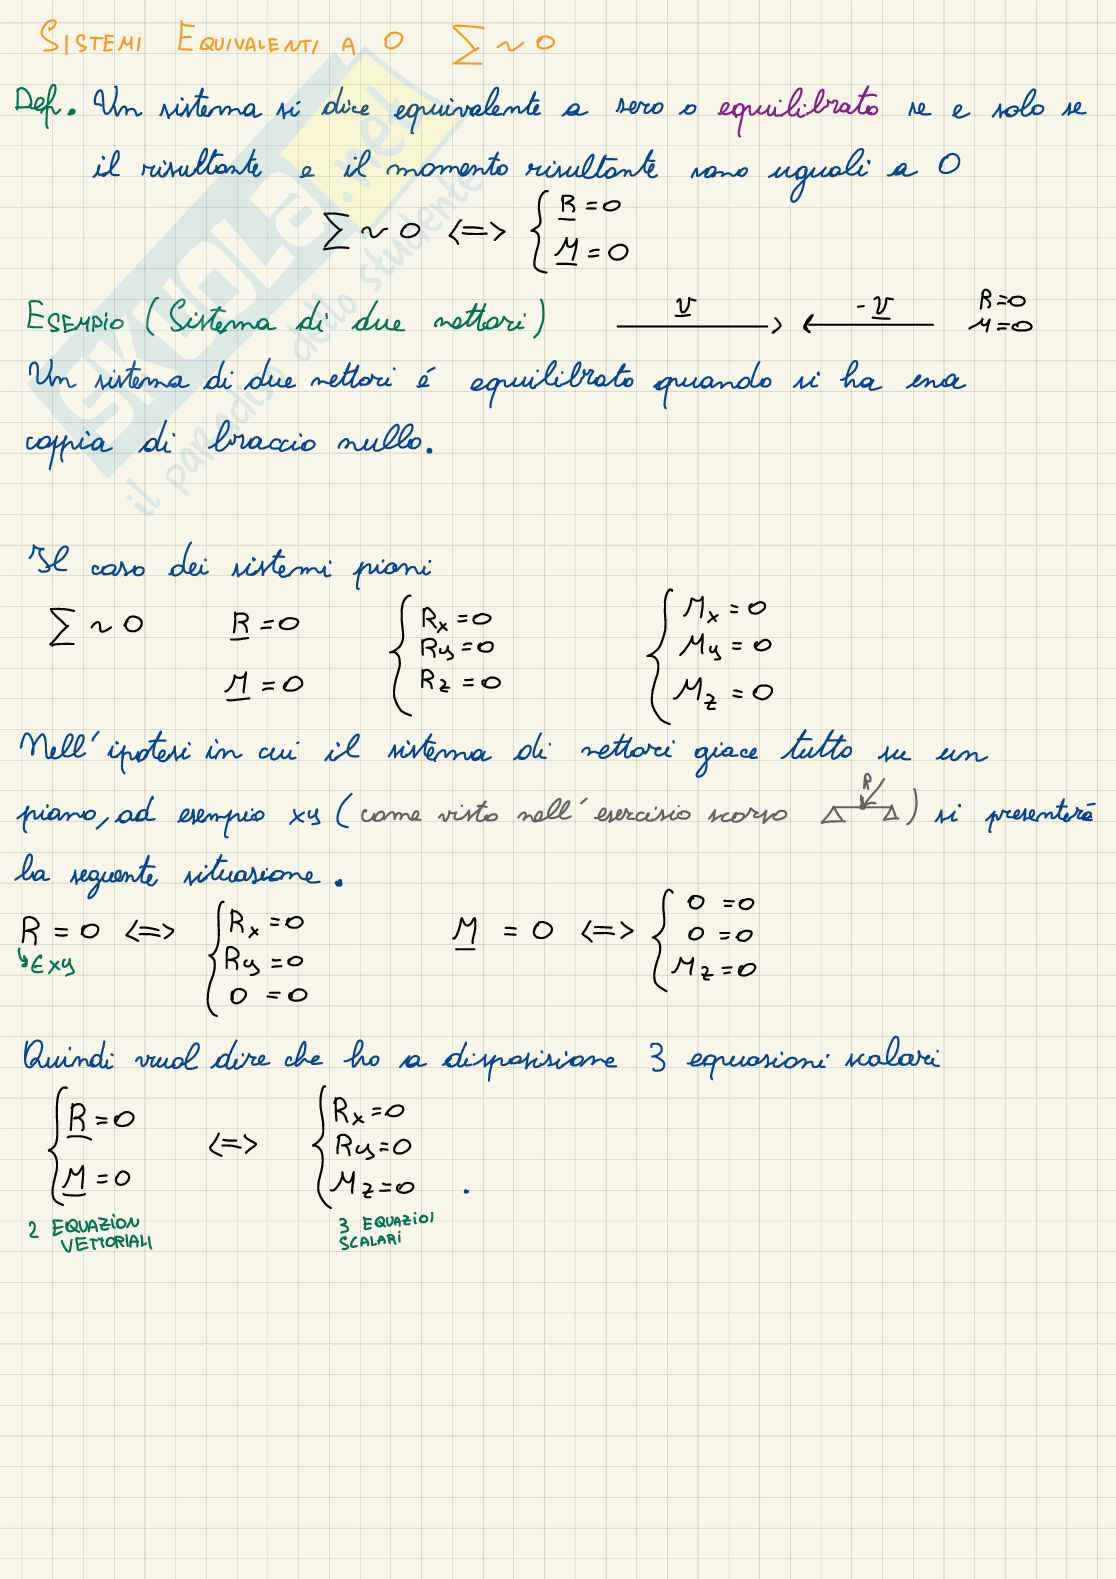 SISTEMI EQUIVALENTI A 0 Σ ~ 0
Def. Un sistema si dice equivalente a zero o equilibrato se e solo se
il risultante e il momento risultante sono uguali a 0
Σ ~ 0 <=> { R = 0
M = 0
ESEMPIO (Sistema di due vettori) v -v R=0
M=0
Un sistema di due vettori é equilibrato quando si ha una
coppia di braccio nullo.
Il caso dei sistemi piani
Σ ~ 0 R = 0 { Rx = 0 { Mx = 0
Ry = 0 My = 0
M = 0 Rz = 0 Mz = 0
Nell' ipotesi in cui il sistema di vettori giace tutto su un
piano, ad esempio xy (come visto nell' esercizio scorso R) si presenterá
la seguente situazione.
R = 0 <=> { Rx = 0 M = 0 <=> { 0 = 0
↳ ∈ xy Ry = 0 0 = 0
0 = 0 Mz = 0
Quindi vuol dire che ho a disposizione 3 equazioni scalari
{ R = 0 <=> { Rx = 0
Ry = 0
M = 0 Mz = 0 .
2 EQUAZION 3 EQUAZIOI
VETTORIALI SCALARI
SKUOLA.net
il paradiso dello studente